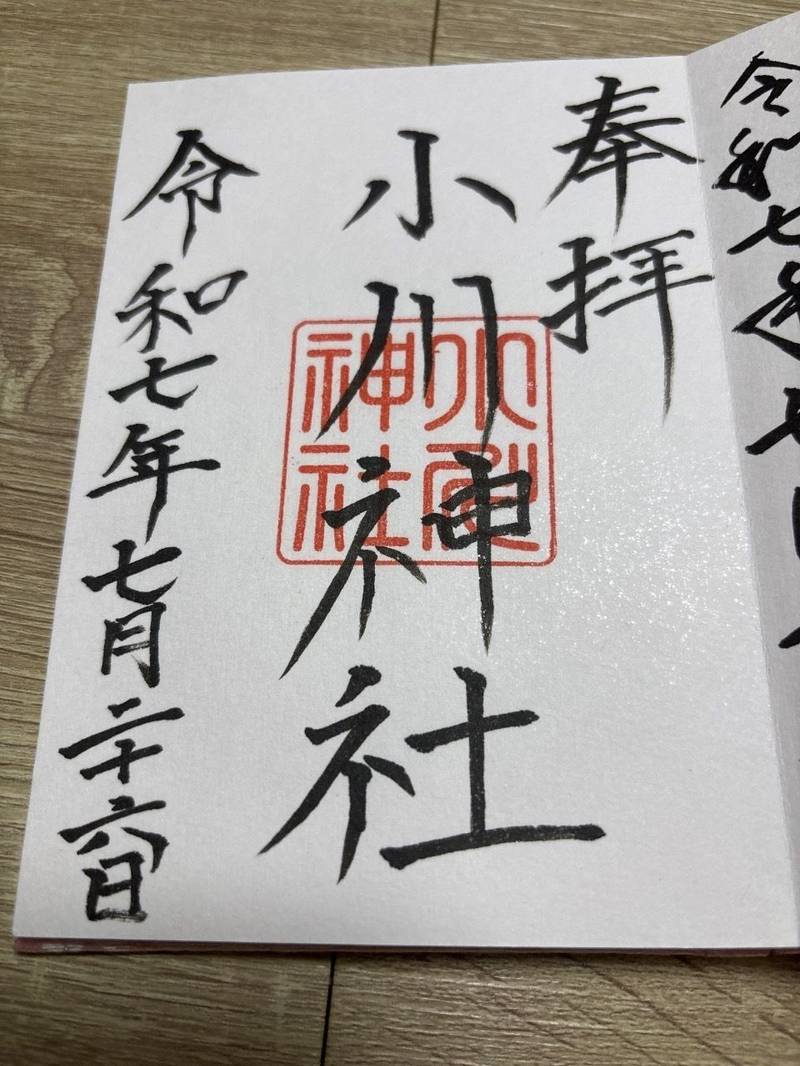 令和七年七
奉拝
小川神社
神社
令和七年七月二十六日